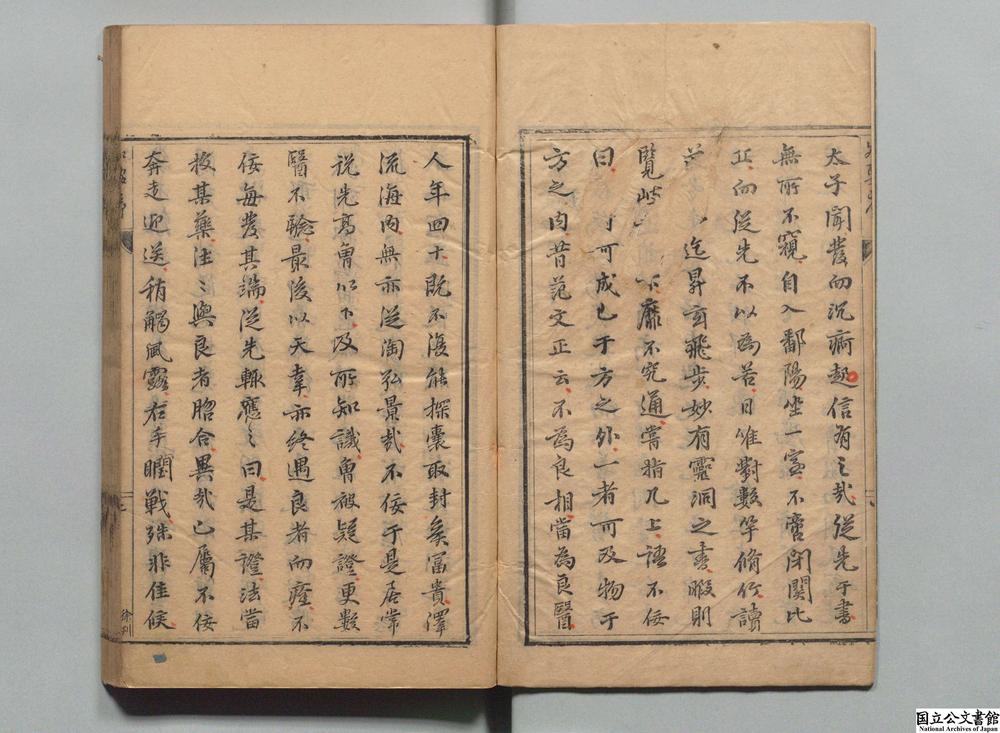 太子聞發而沉痾起信有之哉從先于書
無所不窺自入鄱陽坐一室不啻閉關比
丘而從先不以為苦日惟對數竿脩竹讀
迄昇玄飛步妙有靈洞之書暇則
覽 靡不究通嘗指几上語不佞
曰 可成已于方之外一者可及物于
方之內昔范文正云不為良相當為良醫
人年四十既不復能探囊取封矣富貴澤
流海內無亦從淘弘景哉不佞于是居常
祝先高曾以下及所知識曾被疑證更數
醫不驗最後以天幸亦終遇良者而瘥不
佞每發其端從先輒應之曰是某證法當
投某藥往々與良者脗合異哉已屬不佞
奔走迎送稍觸風露右手瞤戰殊非佳候
国立公文書館
National Archives of Japan